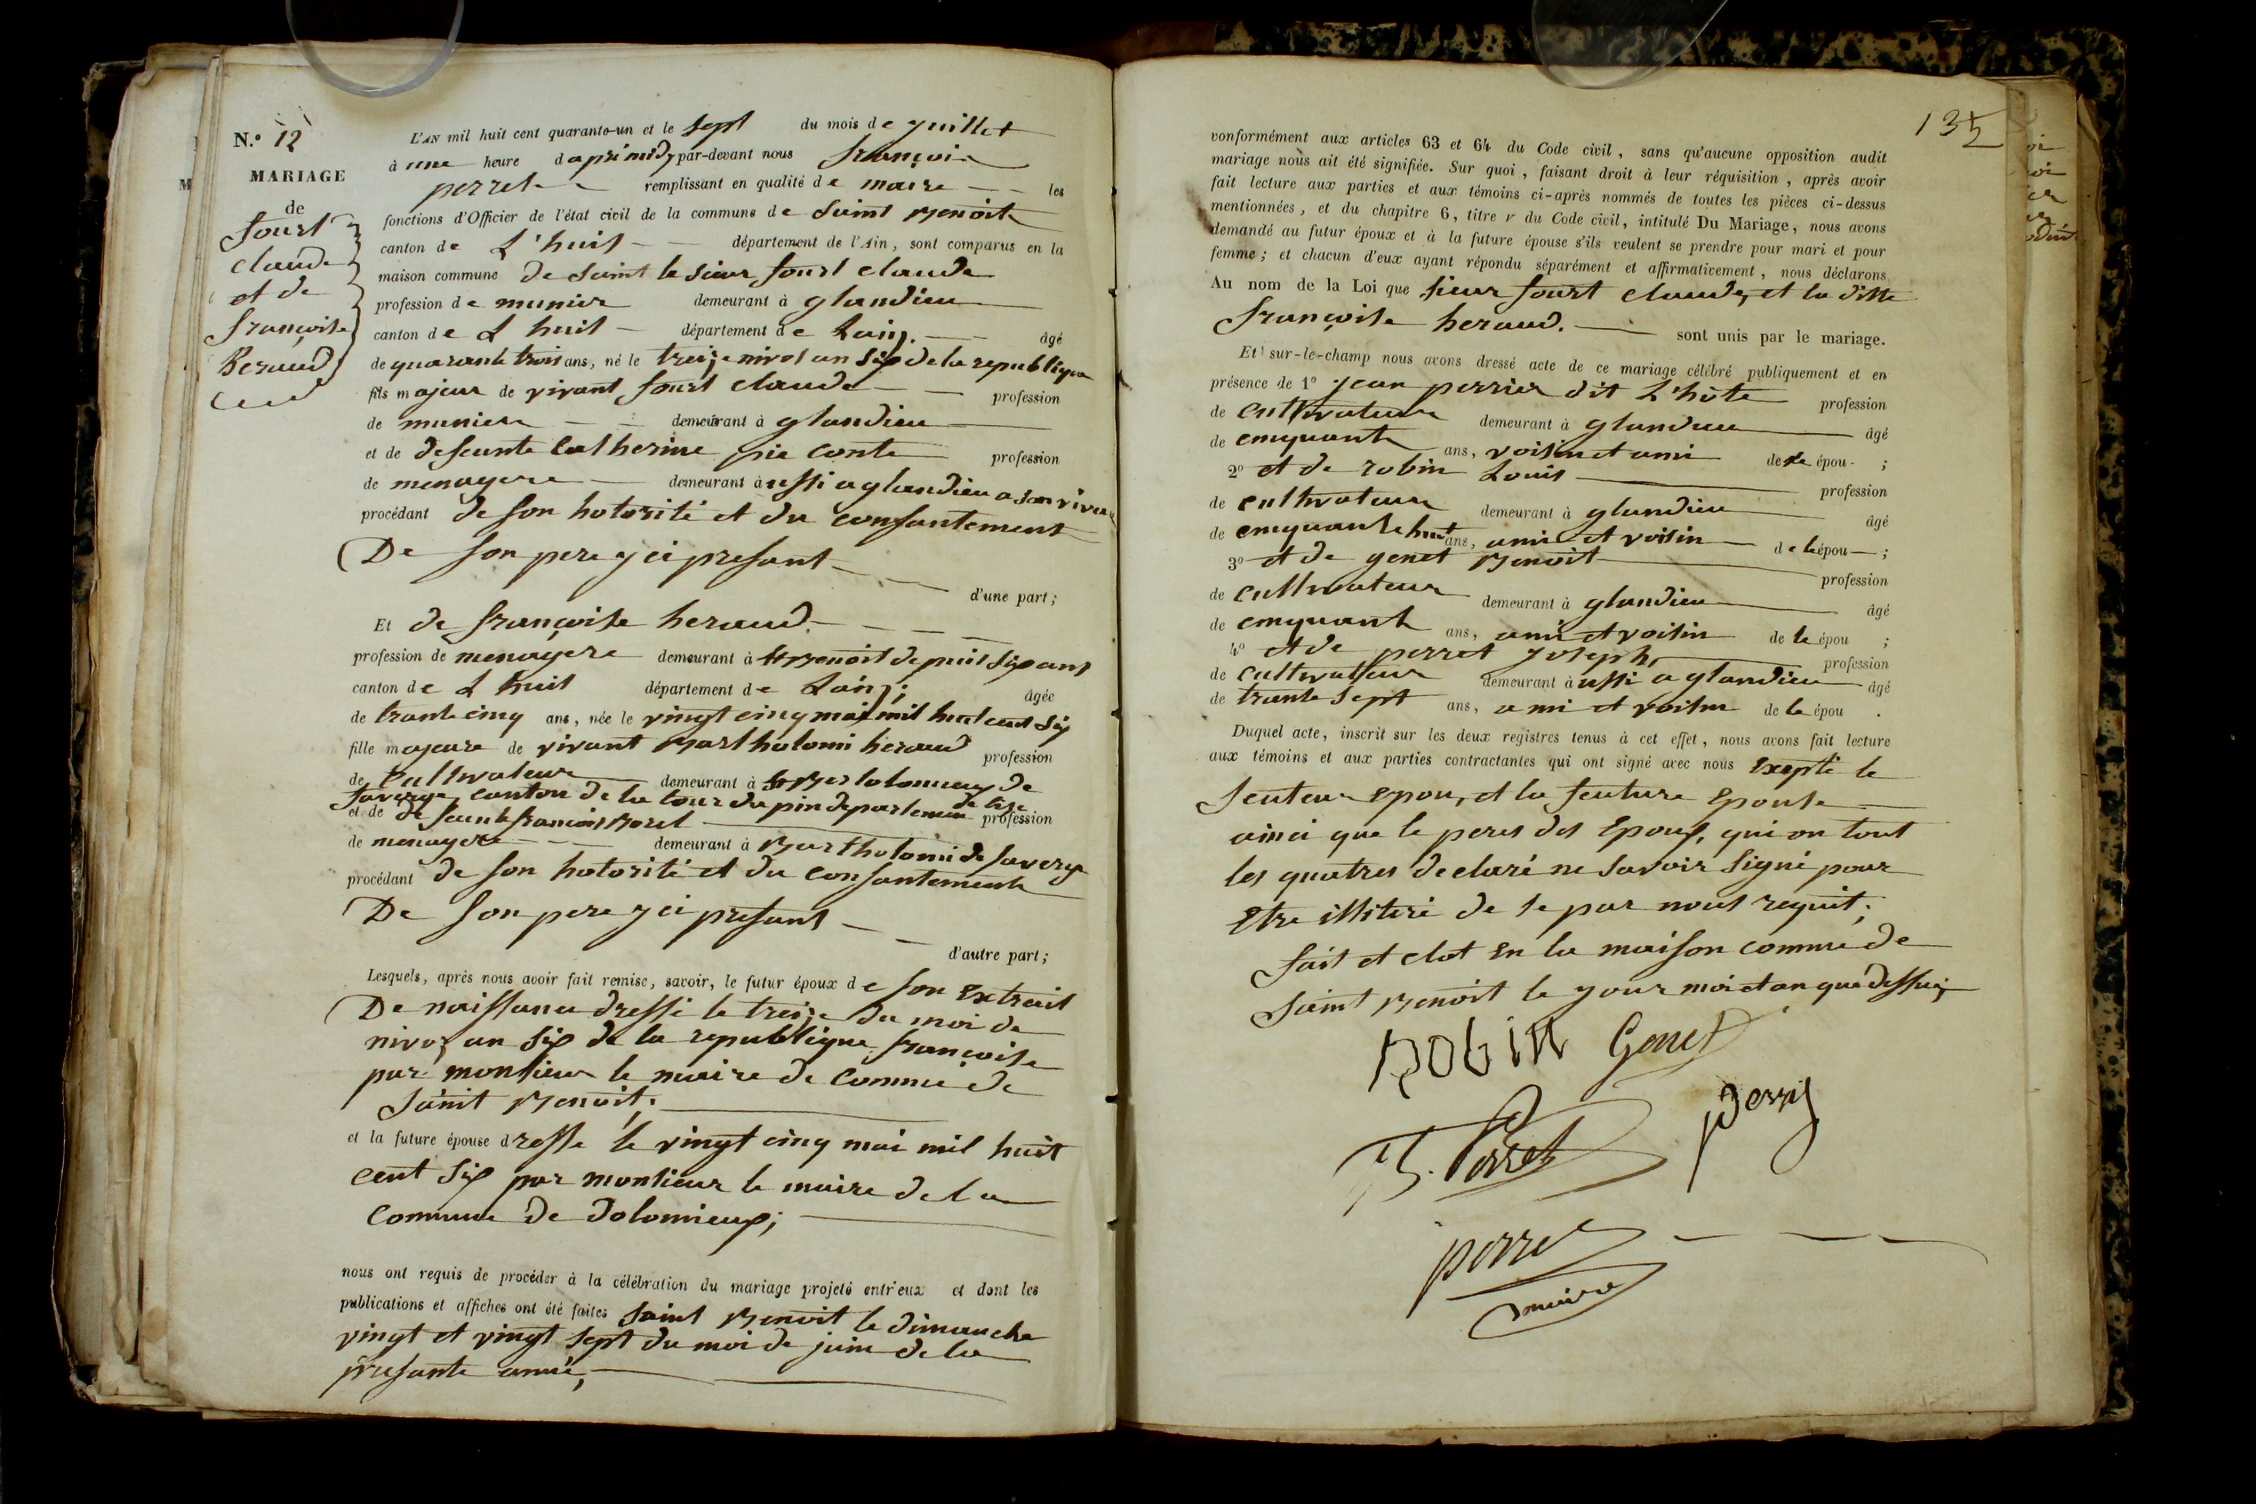 N.º 12
MARIAGE
de
fourt
claude
et de
françoise
Beraud
L'AN mil huit cent quarante-un et le sept du mois de juillet
à une heure d aprimidy par-devant nous françois
perret remplissant en qualité de maire les
fonctions d'Officier de l'état civil de la commune de Saint Benoit
canton de L'huis département de l'Ain, sont comparus en la
maison commune de Saint le sieur fourt claude
profession de munier demeurant à glandieu
canton de L huis département de Lain, âgé
de quarante trois ans, né le treize nivos an six de la republique
fils majeur de vivant fourt claude profession
de munier demeurant à glandieu
et de defeunte Catherine pie conte profession
de menagere demeurant à ussi a glandieu a son vivan
procédant de son hotorité et du consantement
De son pere y ci presant
d'une part;
Et de françoise heraud
profession de menagere demeurant à St Benoit depuis six ans
canton de L huis département de Lain; âgée
de trante cinq ans, née le vingt cinq mai mil huit cent six
fille majeure de vivant Bartholomi heraud profession
de Cultivateur demeurant à St de
faverge canton de la tour du pin departement de lise
et de de feunte françois Borel profession
de menagere demeurant à Bartholomi de faverge
procédant de son hotorité et du consantement
De son pere y ci presant
d'autre part;
Lesquels, après nous avoir fait remise, savoir, le futur époux de son Extrait
De naissance dressé le treize du moi de
nivoz an six de la republique françoise
par monsieur le maire de commune de
Saint Benoit;
et la future épouse dresse le vingt cinq mai mil huit
cent six par monsieur le maire de la
Commune de Dolomieux;
nous ont requis de procéder à la célébration du mariage projeté entr'eux et dont les
publications et affiches ont été faites Saint Benoit le dimanche
vingt et vingt sept du moi de juin de la
présante année,
135
conformément aux articles 63 et 64 du Code civil, sans qu'aucune opposition audit
mariage nous ait été signifiée. Sur quoi, faisant droit à leur réquisition, après avoir
fait lecture aux parties et aux témoins ci-après nommés de toutes les pièces ci-dessus
mentionnées, et du chapitre 6, titre v du Code civil, intitulé Du Mariage, nous avons
demandé au futur époux et à la future épouse s'ils veulent se prendre pour mari et pour
femme; et chacun d'eux ayant répondu séparément et affirmativement, nous déclarons
Au nom de la Loi que sieur fourt claude, et la ditte
françoise heraud. sont unis par le mariage.
Et sur-le-champ nous avons dressé acte de ce mariage célébré publiquement et en
présence de 1º jean perrier dit L'hôte profession
de cultivateur demeurant à glandieu âgé
de cinquante ans, voisin et ami de le épou ;
2º et de robin Louis profession
de cultivateur demeurant à glandieu âgé
de cinquante huit ans, ami et voisin de le épou ;
3º et de genet Benoit profession
de Cultivateur demeurant à glandieu âgé
de cinquante ans, ami et voisin de le épou ;
4º et de perret joseph, profession
de Cultivateur demeurant à ussi a glandieu âgé
de trante sept ans, ami et voisin de le épou .
Duquel acte, inscrit sur les deux registres tenus à cet effet, nous avons fait lecture
aux témoins et aux parties contractantes qui ont signé avec nous Exepté le
feuteur epou, et la feuture Epouse
ainci que le peres des Epoux, qui on tout
les quatres declaré ne savoir signé pour
Etre illiteré de se par nous requit;
fait et clot En la maison commune de
Saint Benoit le jour moi et an que dessus,
ROBIN Genet
J. Perret
perret
maire